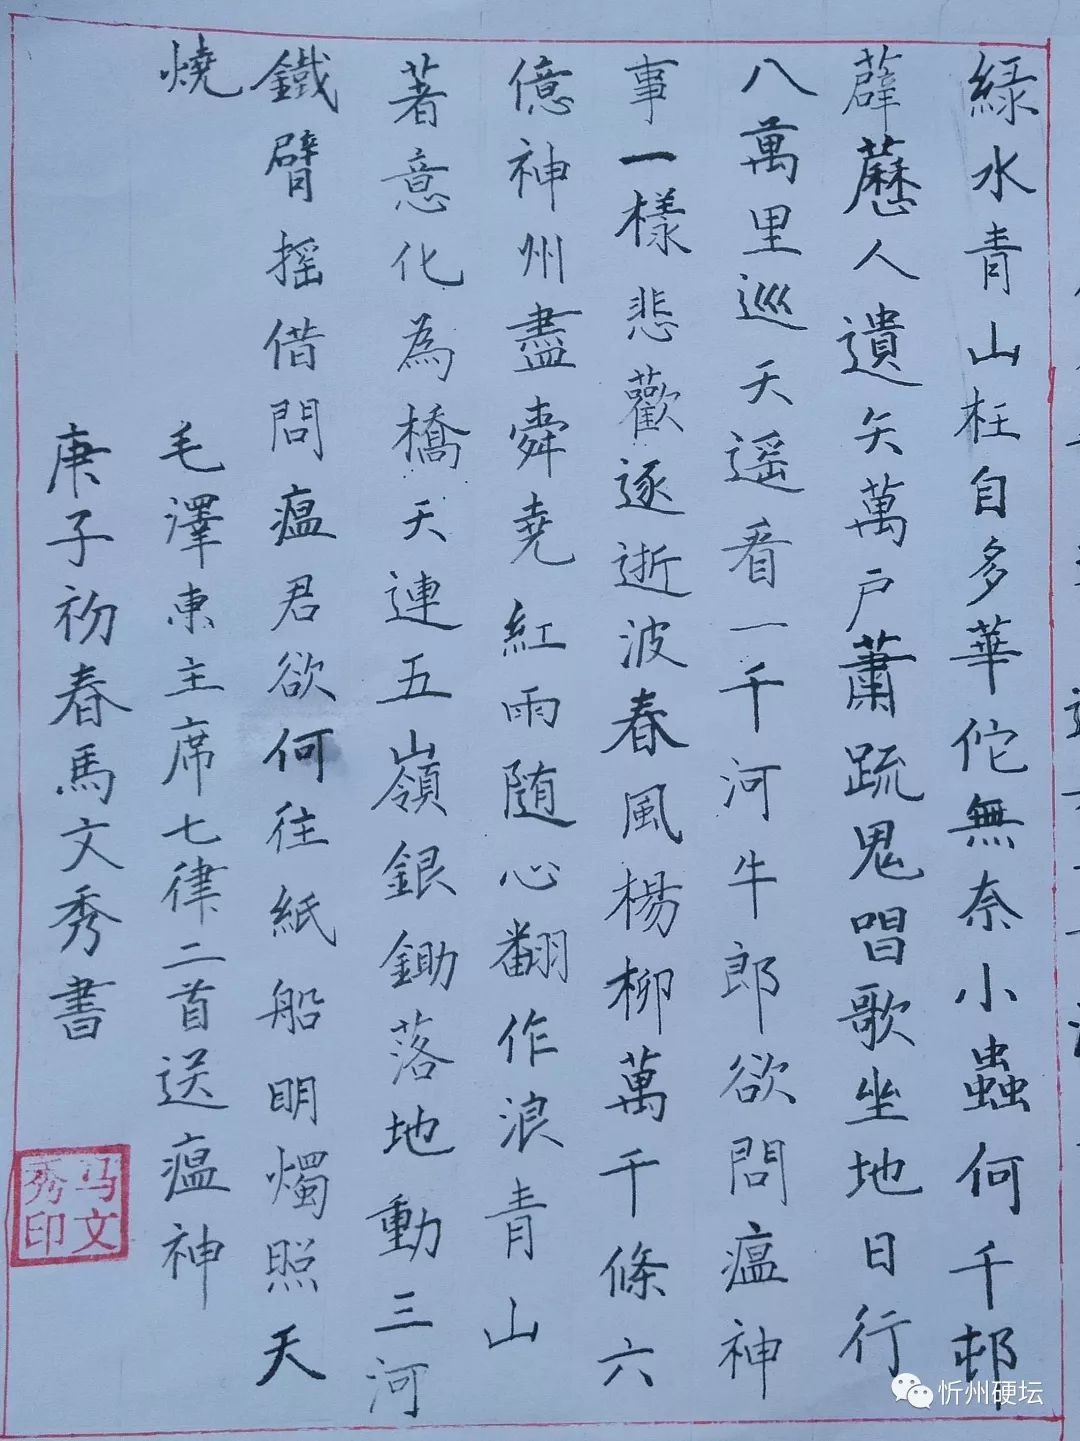 綠水青山枉自多華佗無奈小蟲何千邨
薜藶人遺矢萬户蕭疏鬼唱歌坐地日行
八萬里巡天遥看一千河牛郎欲問瘟神
事一樣悲歡逐逝波春風楊柳萬千條六
億神州盡舜堯紅雨随心翻作浪青山
著意化為橋天連五嶺銀鋤落地動三河
鐵臂摇借問瘟君欲何往紙船明燭照天
燒
毛澤東主席七律二首送瘟神
庚子初春馬文秀書
马文秀印
忻州硬坛